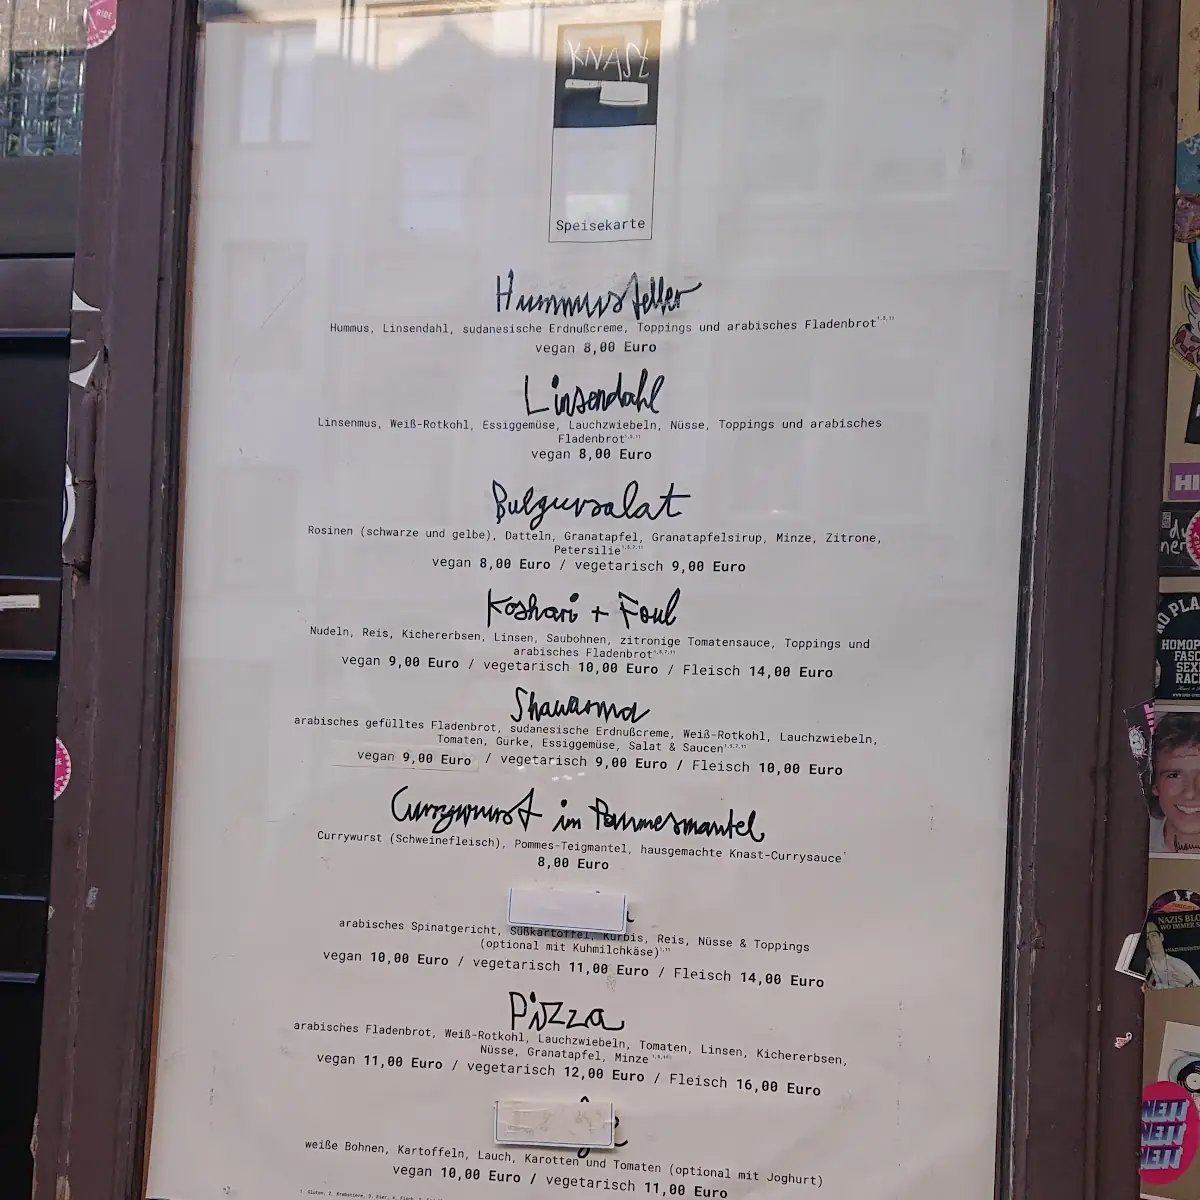 KNAST
Speisekarte
Hummusteller
Hummus, Linsendahl, sudanesische Erdnußcreme, Toppings und arabisches Fladenbrot
vegan 8,00 Euro
Linsendahl
Linsenmus, Weiß-Rotkohl, Essiggemüse, Lauchzwiebeln, Nüsse, Toppings und arabisches
Fladenbrot
vegan 8,00 Euro
Bulgursalat
Rosinen (schwarze und gelbe), Datteln, Granatapfel, Granatapfelsirup, Minze, Zitrone,
Petersilie
vegan 8,00 Euro / vegetarisch 9,00 Euro
Koshari + Foul
Nudeln, Reis, Kichererbsen, Linsen, Saubohnen, zitronige Tomatensauce, Toppings und
arabisches Fladenbrot
vegan 9,00 Euro / vegetarisch 10,00 Euro / Fleisch 14,00 Euro
Shawarma
arabisches gefülltes Fladenbrot, sudanesische Erdnußcreme, Weiß-Rotkohl, Lauchzwiebeln,
Tomaten, Gurke, Essiggemüse, Salat & Saucen
vegan 9,00 Euro / vegetarisch 9,00 Euro / Fleisch 10,00 Euro
Currywurst im Pommesmantel
Currywurst (Schweinefleisch), Pommes-Teigmantel, hausgemachte Knast-Currysauce
8,00 Euro
arabisches Spinatgericht, Süßkartoffel, Kürbis, Reis, Nüsse & Toppings
(optional mit Kuhmilchkäse)
vegan 10,00 Euro / vegetarisch 11,00 Euro / Fleisch 14,00 Euro
Pizza
arabisches Fladenbrot, Weiß-Rotkohl, Lauchzwiebeln, Tomaten, Linsen, Kichererbsen,
Nüsse, Granatapfel, Minze
vegan 11,00 Euro / vegetarisch 12,00 Euro / Fleisch 16,00 Euro
weiße Bohnen, Kartoffeln, Lauch, Karotten und Tomaten (optional mit Joghurt)
vegan 10,00 Euro / vegetarisch 11,00 Euro